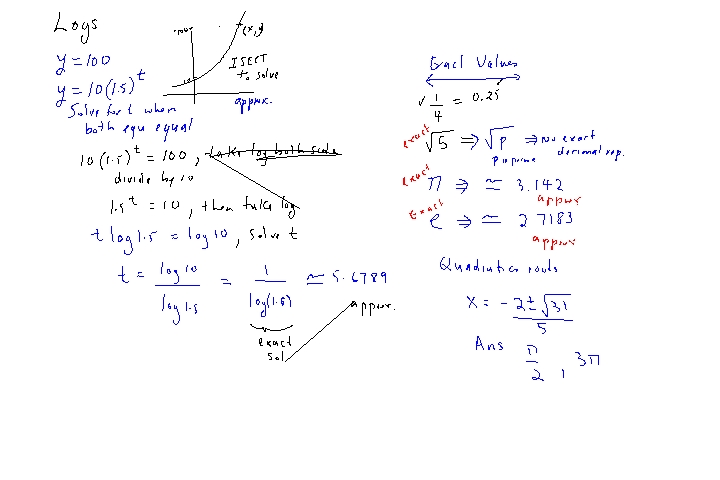 Logs
y = 100
y = 10(1.5)^t
Solve for t when
both equ equal
100
10
(x, y)
ISECT
to solve
approx.
10(1.5)^t = 100, take log both side
divide by 10
1.5^t = 10, then take log
t log 1.5 = log 10, solve t
t = log 10 / log 1.5 = 1 / log(1.5) ≃ 5.6789
approx.
exact
sol
Exact Values
√ 1/4 = 0.25
exact √5 ⇒ √p ⇒ No exact
p prime decimal rep.
exact π ⇒ ≃ 3.142
approx
Exact e ⇒ ≃ 2.7183
approx
Quadratics roots
x = -2 ± √31 / 5
Ans π/2, 3π